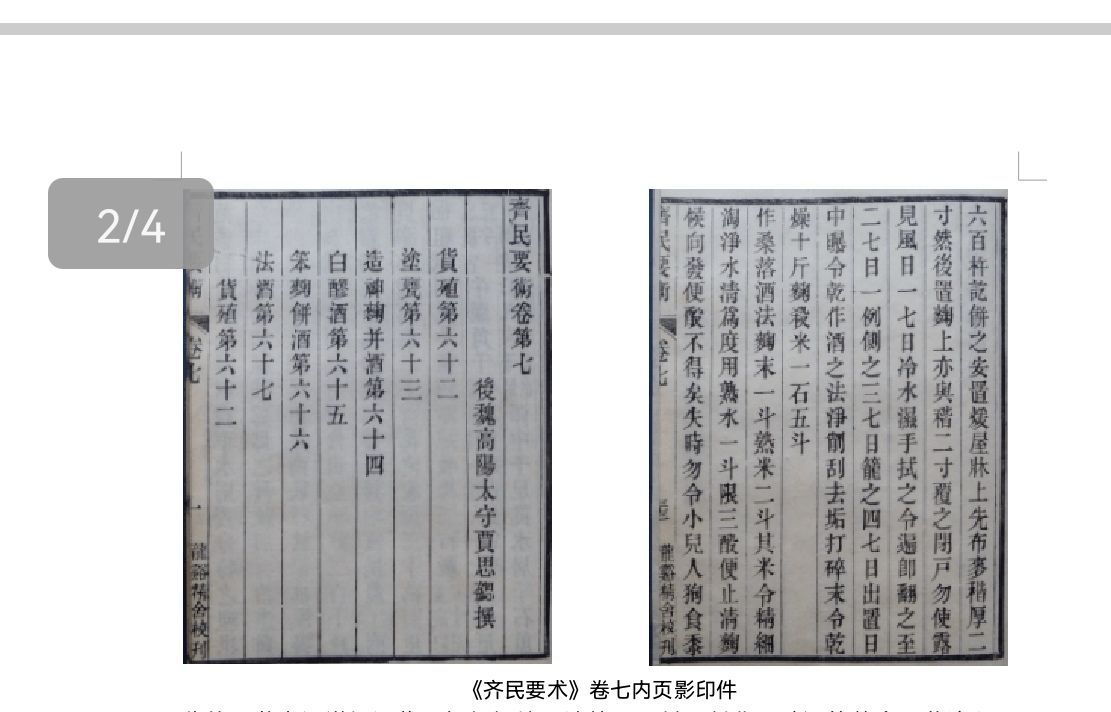 2/4
齊民要術卷第七
後魏高陽太守賈思勰撰
貨殖第六十二
塗甕第六十三
造神麴并酒第六十四
白醪酒第六十五
笨麴餅酒第六十六
法酒第六十七
貨殖第六十二
卷七
一
龍谿精舍校刊
六百杵訖餅之安置煖屋牀上先布麥䅌厚二
寸然後置麴上亦與䅌二寸覆之閉戸勿使露
見風日一七日冷水濕手拭之令遍卽翻之至
二七日一例側之三七日籠之四七日出置日
中曝令乾作酒之法淨削刮去垢打碎末令乾
燥十斤麴殺米一石五斗
作桑落酒法麴末一斗熟米二斗其米令精細
淘淨水清爲度用熟水一斗限三酘便止清麴
候向發便酘不得失時勿令小兒人狗食黍
齊民要術
卷七
龍谿精舍校刊
《齐民要术》卷七内页影印件